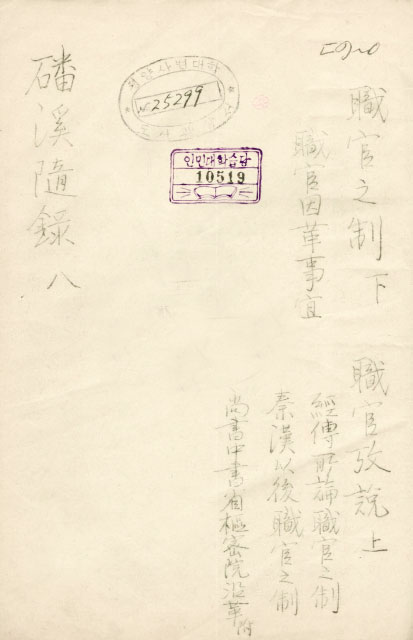 職官之制 下
職官因革事宜
職官攷說 上
經傳所論職官之制
秦漢以後職官之制
尚書中書省樞密院沿革附
평양사범대학
№25299
인민대학습당
10519
磻溪隨錄 八